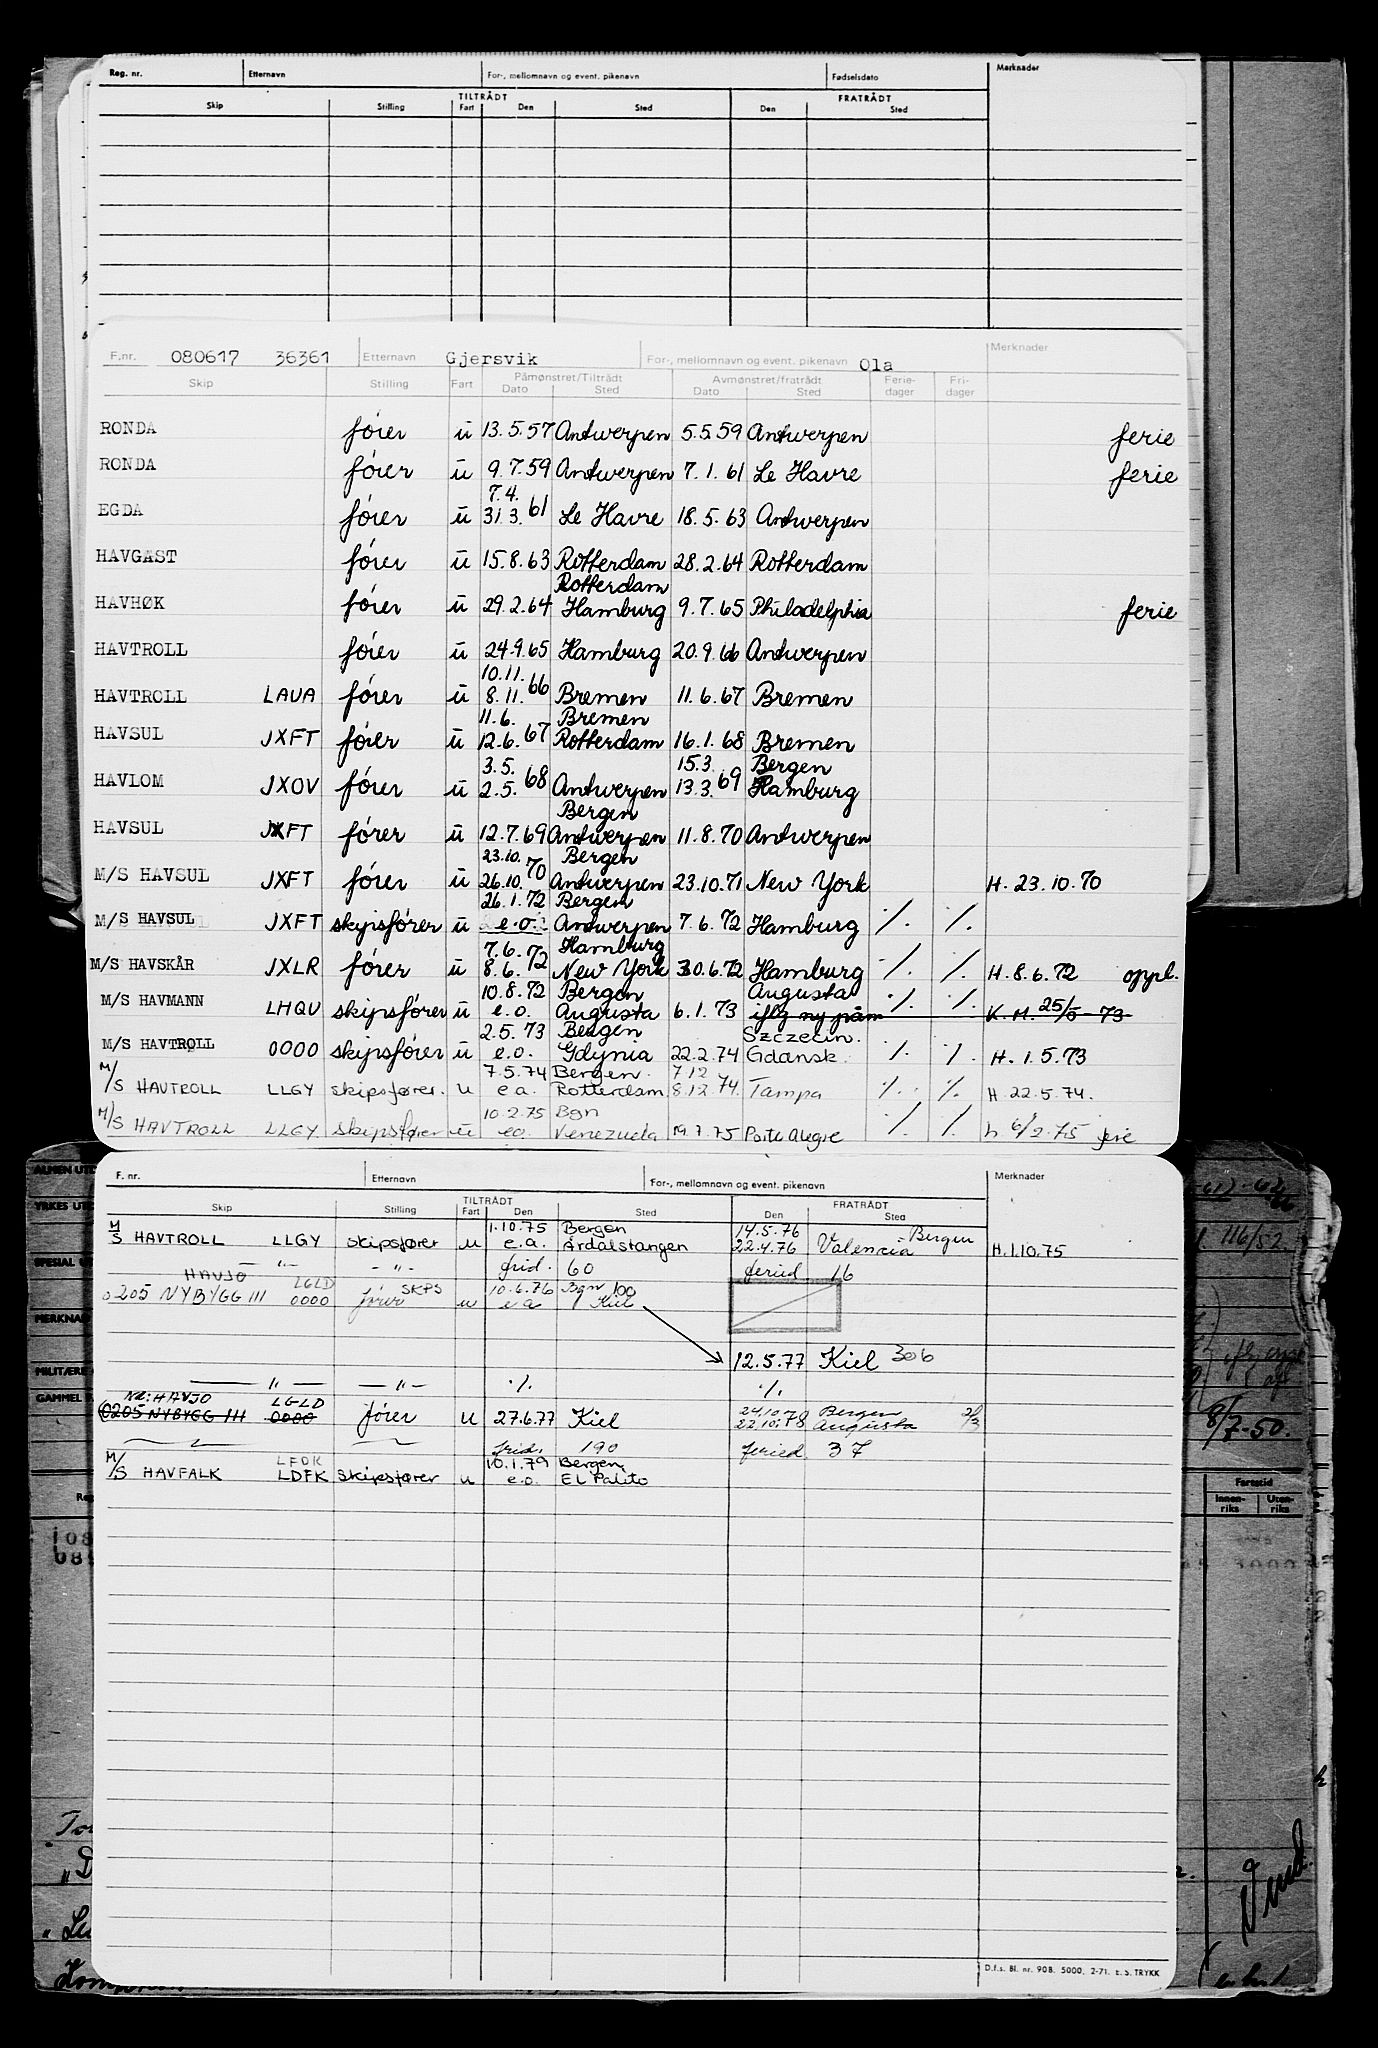 Reg. nr. Etternavn For-, mellomnavn og event. pikenavn Fødselsdato Merknader
TILTRÅDT FRATRÅDT
Skip Stilling Fart Den Sted Den Sted
F.nr. 080617 36361 Etternavn Gjersvik For-, mellomnavn og event. pikenavn Ola Merknader
Skip Stilling Fart Påmønstret/Tiltrådt Avmønstret/fratrådt Ferie- Fri-
Dato Sted Dato Sted dager dager
RONDA fører u 13.5.57 Antwerpen 5.5.59 Antwerpen ferie
RONDA fører u 9.7.59 Antwerpen 7.1.61 Le Havre ferie
7.4.
EGDA fører u 31.3.61 Le Havre 18.5.63 Antwerpen
HAVGAST fører u 15.8.63 Rotterdam 28.2.64 Rotterdam
Rotterdam
HAVHØK fører u 29.2.64 Hamburg 9.7.65 Philadelphia ferie
HAVTROLL fører u 24.9.65 Hamburg 20.9.66 Antwerpen
10.11.
HAVTROLL LAUA fører u 8.11.66 Bremen 11.6.67 Bremen
11.6. Bremen
HAVSUL JXFT fører u 12.6.67 Rotterdam 16.1.68 Bremen
3.5. 15.3. Bergen
HAVLOM JXOV fører u 2.5.68 Antwerpen 13.3.69 Hamburg
Bergen
HAVSUL JXFT fører u 12.7.69 Antwerpen 11.8.70 Antwerpen
23.10. Bergen
M/S HAVSUL JXFT fører u 26.10.70 Antwerpen 23.10.71 New York H. 23.10.70
26.1.72 Bergen
M/S HAVSUL JXFT skipsfører u e.o. Antwerpen 7.6.72 Hamburg ./. ./.
7.6.72 Hamburg
M/S HAVSKÅR JXLR fører u 8.6.72 New York 30.6.72 Hamburg ./. ./. H. 8.6.72 oppl.
10.8.72 Bergen Augusta
M/S HAVMANN LHQU skipsfører u e.o. Augusta 6.1.73 iflg ny påm ./. ./. K.M. 25/5-73
2.5.73 Bergen Szczecin.
M/S HAVTROLL 0000 skipsfører u e.o. Gdynia 22.2.74 Gdansk. ./. ./. H. 1.5.73
7.5.74 Bergen. 7.12
M/S HAVTROLL LLGY skipsfører. u e.a. Rotterdam 8.12.74. Tampa ./. ./. H 22.5.74.
10.2.75 Bgn
M/S HAVTROLL LLGY skipsfører u eo. Venezuela 19.7.75 Porto Alegre ./. ./. h 6/2.75 ferie
F. nr. Etternavn For-, mellomnavn og event. pikenavn Merknader
TILTRÅDT FRATRÅDT
Skip Stilling Fart Den Sted Den Sted
1.10.75 Bergen 14.5.76 Bergen
M/S HAVTROLL LLGY skipsfører u e.a. Årdalstangen 22.4.76 Valencia H.1.10.75
— " — - " - frid. 60 feried. 16
HAVJO LGLD SKPS 10.6.76 Bgn 100
0205 NYBYGG III 0000 fører u e a Kiel
12.5.77 Kiel 306
— " — — " — ./. ./.
Nå: HAVJO LGLD 24.10.78 Bergen
0205 NYBYGG III 0000 fører u 27.6.77 Kiel 22.10.78 Augusta 2/3
frid. 190 feried 37
LFDK 10.1.79 Bergen.
M/S HAVFALK LDFK skipsfører u e.o. El Palito
D.f.s. Bl. nr. 908. 5000. 2-71. E. S. TRYKK
ALMEN UTD
YRKES UTD
116/52.
SPESIAL
MERKNAD
MILITÆRE
GAMMEL
8/7-50.
Fartstid
Innen-riks Uten-riks